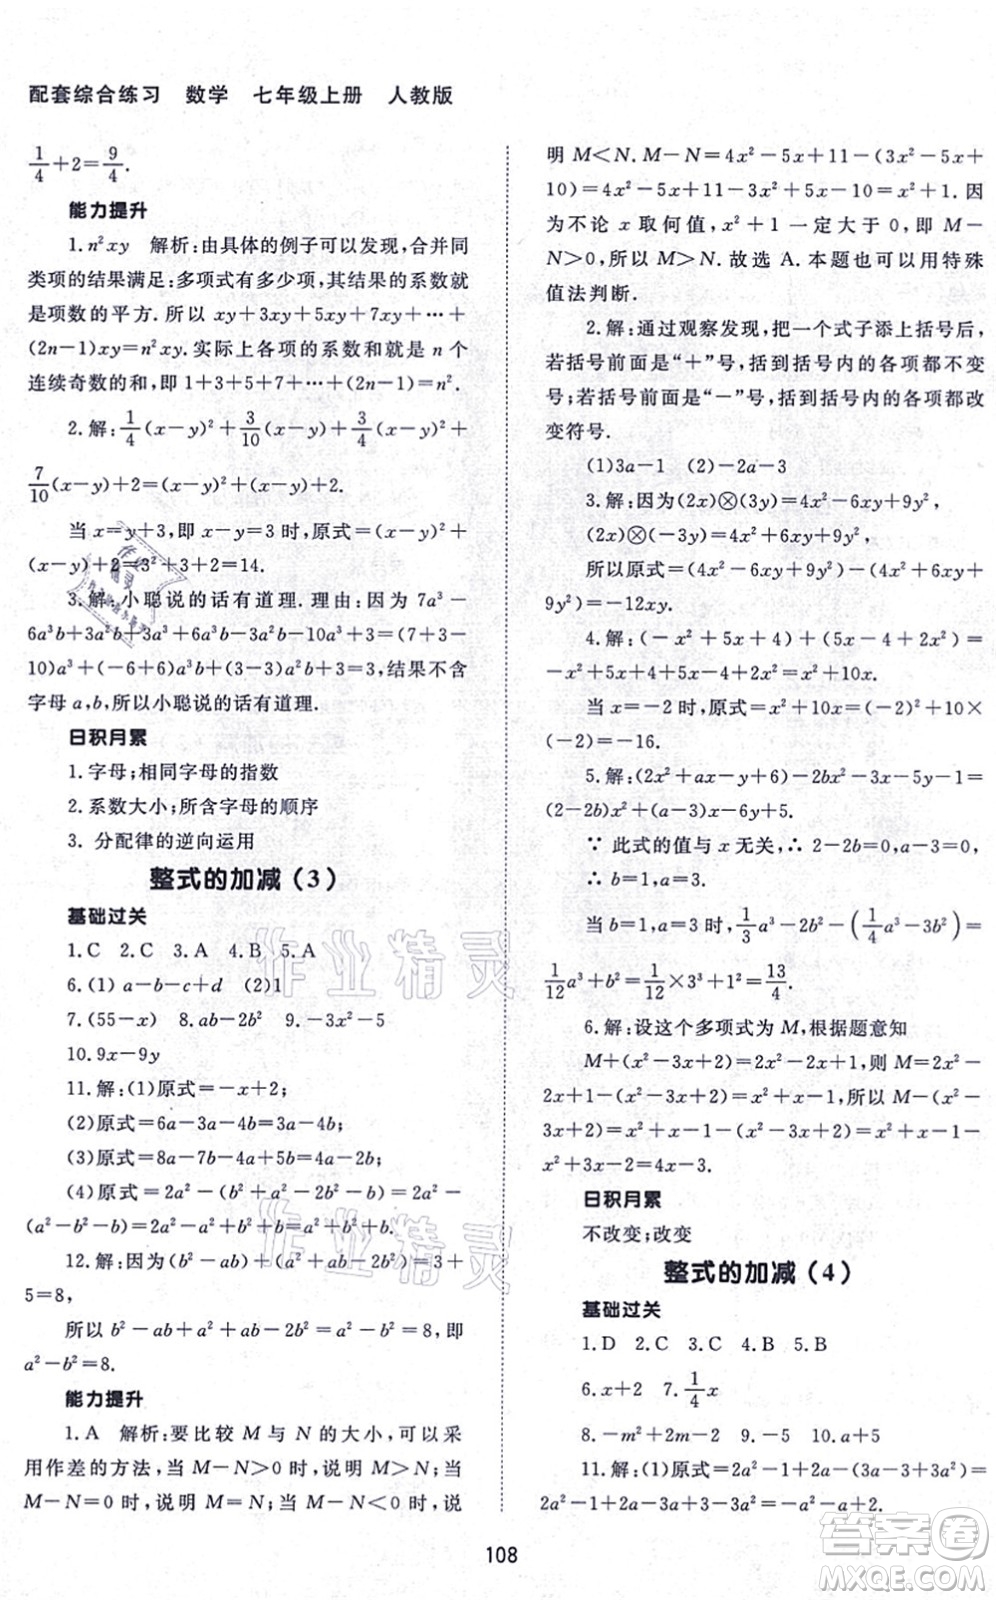 配套综合练习 数学 七年级上册 人教版
1/4+2=9/4.
能力提升
1.n²xy 解析:由具体的例子可以发现,合并同
类项的结果满足:多项式有多少项,其结果的系数就
是项数的平方.所以 xy+3xy+5xy+7xy+…+
(2n-1)xy=n²xy.实际上各项的系数和就是 n 个
连续奇数的和,即 1+3+5+7+…+(2n-1)=n².
2.解:1/4(x-y)²+3/10(x-y)+3/4(x-y)²+
7/10(x-y)+2=(x-y)²+(x-y)+2.
当 x=y+3,即 x-y=3 时,原式=(x-y)²+
(x-y)+2=3²+3+2=14.
3.解:小聪说的话有道理.理由:因为 7a³-
6a³b+3a²b+3a³+6a³b-3a²b-10a³+3=(7+3-
10)a³+(-6+6)a³b+(3-3)a²b+3=3,结果不含
字母 a,b,所以小聪说的话有道理.
日积月累
1.字母;相同字母的指数
2.系数大小;所含字母的顺序
3. 分配律的逆向运用
整式的加减(3)
基础过关
1.C 2.C 3.A 4.B 5.A
6.(1) a-b-c+d (2)1
7.(55-x) 8.ab-2b² 9.-3x²-5
10.9x-9y
11.解:(1)原式=-x+2;
(2)原式=6a-3a-4a=-a;
(3)原式=8a-7b-4a+5b=4a-2b;
(4)原式=2a²-(b²+a²-2b²-b)-
(a²-b²-b)=2a²-a²+b²+b-a²+b²+b=2b²+2b.
12.解:因为(b²-ab)+(a²+ab-2b²)=3+
5=8,
所以 b²-ab+a²+ab-2b²=a²-b²=8,即
a²-b²=8.
能力提升
1.A 解析:要比较 M 与 N 的大小,可以采
用作差的方法,当 M-N>0 时,说明 M>N;当
M-N=0 时,说明 M=N;当 M-N<0 时,说
明 M<N.M-N=4x²-5x+11-(3x²-5x+
10)=4x²-5x+11-3x²+5x-10=x²+1.因
为不论 x 取何值,x²+1 一定大于 0,即 M-
N>0,所以 M>N.故选 A.本题也可以用特殊
值法判断.
2.解:通过观察发现,把一个式子添上括号后,
若括号前面是“+”号,括到括号内的各项都不变
号;若括号前面是“-”号,括到括号内的各项都改
变符号.
(1)3a-1 (2)-2a-3
3.解:因为(2x)⊗(3y)=4x²-6xy+9y²,
(2x)⊗(-3y)=4x²+6xy+9y²,
所以原式=(4x²-6xy+9y²)-(4x²+6xy+
9y²)=-12xy.
4.解:(-x²+5x+4)+(5x-4+2x²)=
-x²+5x+4+5x-4+2x²=x²+10x.
当 x=-2 时,原式=x²+10x=(-2)²+10×
(-2)=-16.
5.解:(2x²+ax-y+6)-2bx²-3x+5y-1=
(2-2b)x²+(a-3)x+4y+5.
∵ 此式的值与 x 无关,∴ 2-2b=0,a-3=0,
∴ b=1,a=3.
当 b=1,a=3 时,1/3a³-2b²-(1/4a³-3b²)=
1/12a³+b²=1/12×3³+1²=13/4.
6.解:设这个多项式为 M,根据题意知
M+(x²-3x+2)=2x²-2x+1,则 M=2x²-
2x+1-(x²-3x+2)=x²+x-1,所以 M-(2x²-
3x+2)=x²+x-1-(2x²-3x+2)=x²+x-1-
2x²+3x-2=-x²+4x-3.
日积月累
不改变;改变
整式的加减(4)
基础过关
1.D 2.C 3.C 4.B 5.B
6.x+2 7.1/4x
8.-m²+2m-2 9.-5 10.5
11.解:(1)原式=2a²-1+2a-3(a-1+a²)=
2a²-1+2a-3a+3-3a²=-a²-a+2.
108
作业精灵
作业精灵
答案圈
MXQE.COM